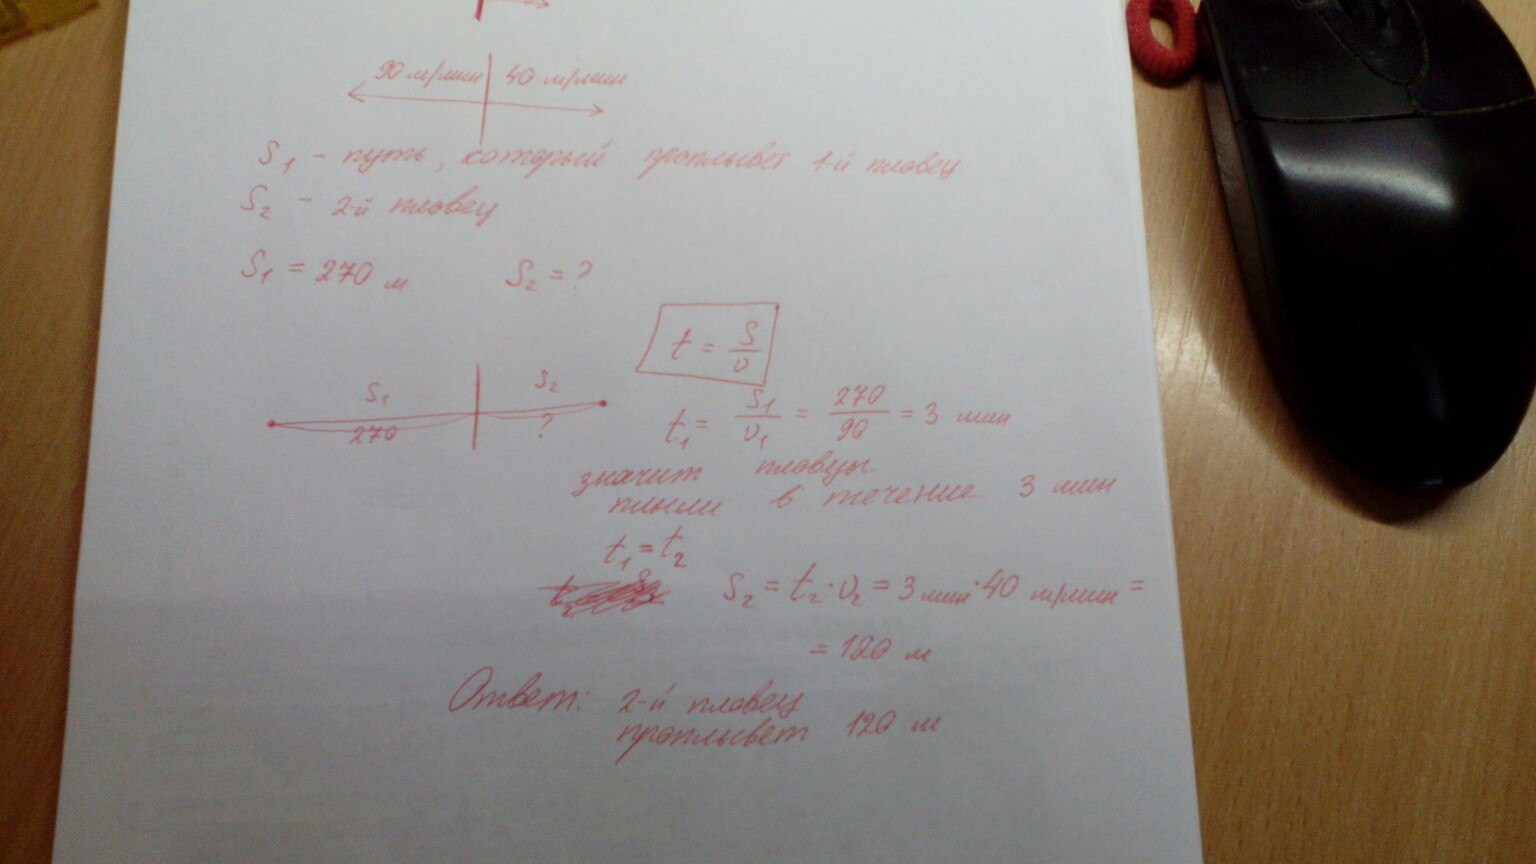 90 м/мин 40 м/мин
S₁ - путь, который проплывет 1-й пловец
S₂ - 2-й пловец
S₁ = 270 м S₂ = ?
t = S/υ
S₁ S₂
270 ?
t₁ = S₁/υ₁ = 270/90 = 3 мин
значит пловцы
плыли в течение 3 мин
t₁ = t₂
S₂ = t₂·υ₂ = 3 мин·40 м/мин =
= 120 м
Ответ: 2-й пловец
проплывет 120 м